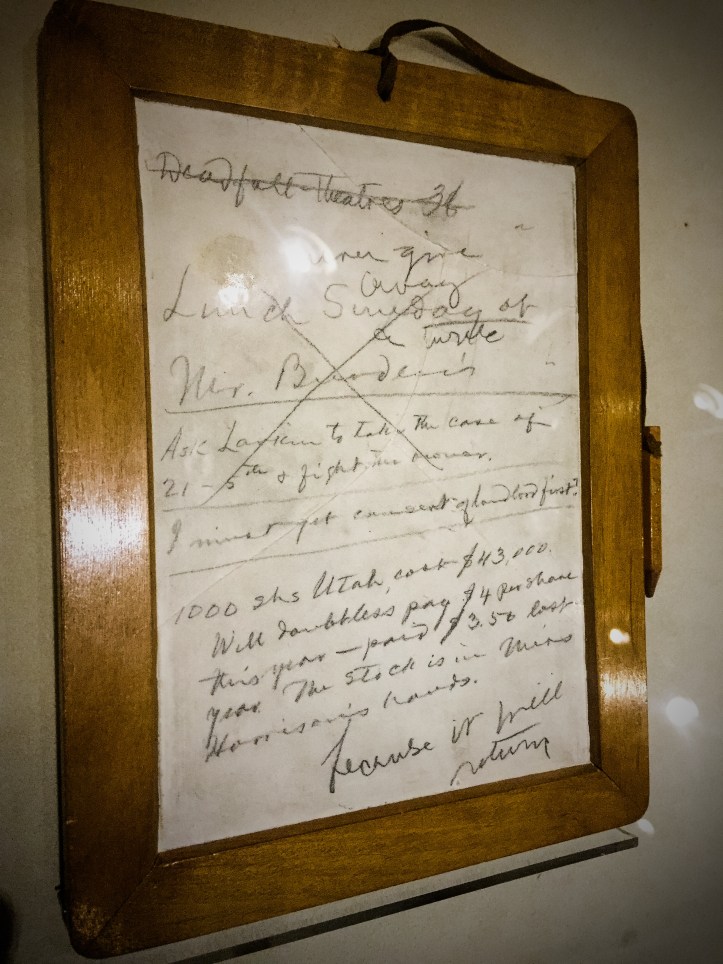 Deadfall Theatres 36
never give
away
Lunch Sunday at
a turtle
Mr. Burden's
Ask Larkin to take the case of
21-5th & fight the mover.
I must get consent of landlord first.
1000 shs Utah, cost $43,000.
Will doubtless pay $4 per share
this year — paid $3.50 last
year. The stock is in Miss
Harrison's hands.
because it will
return